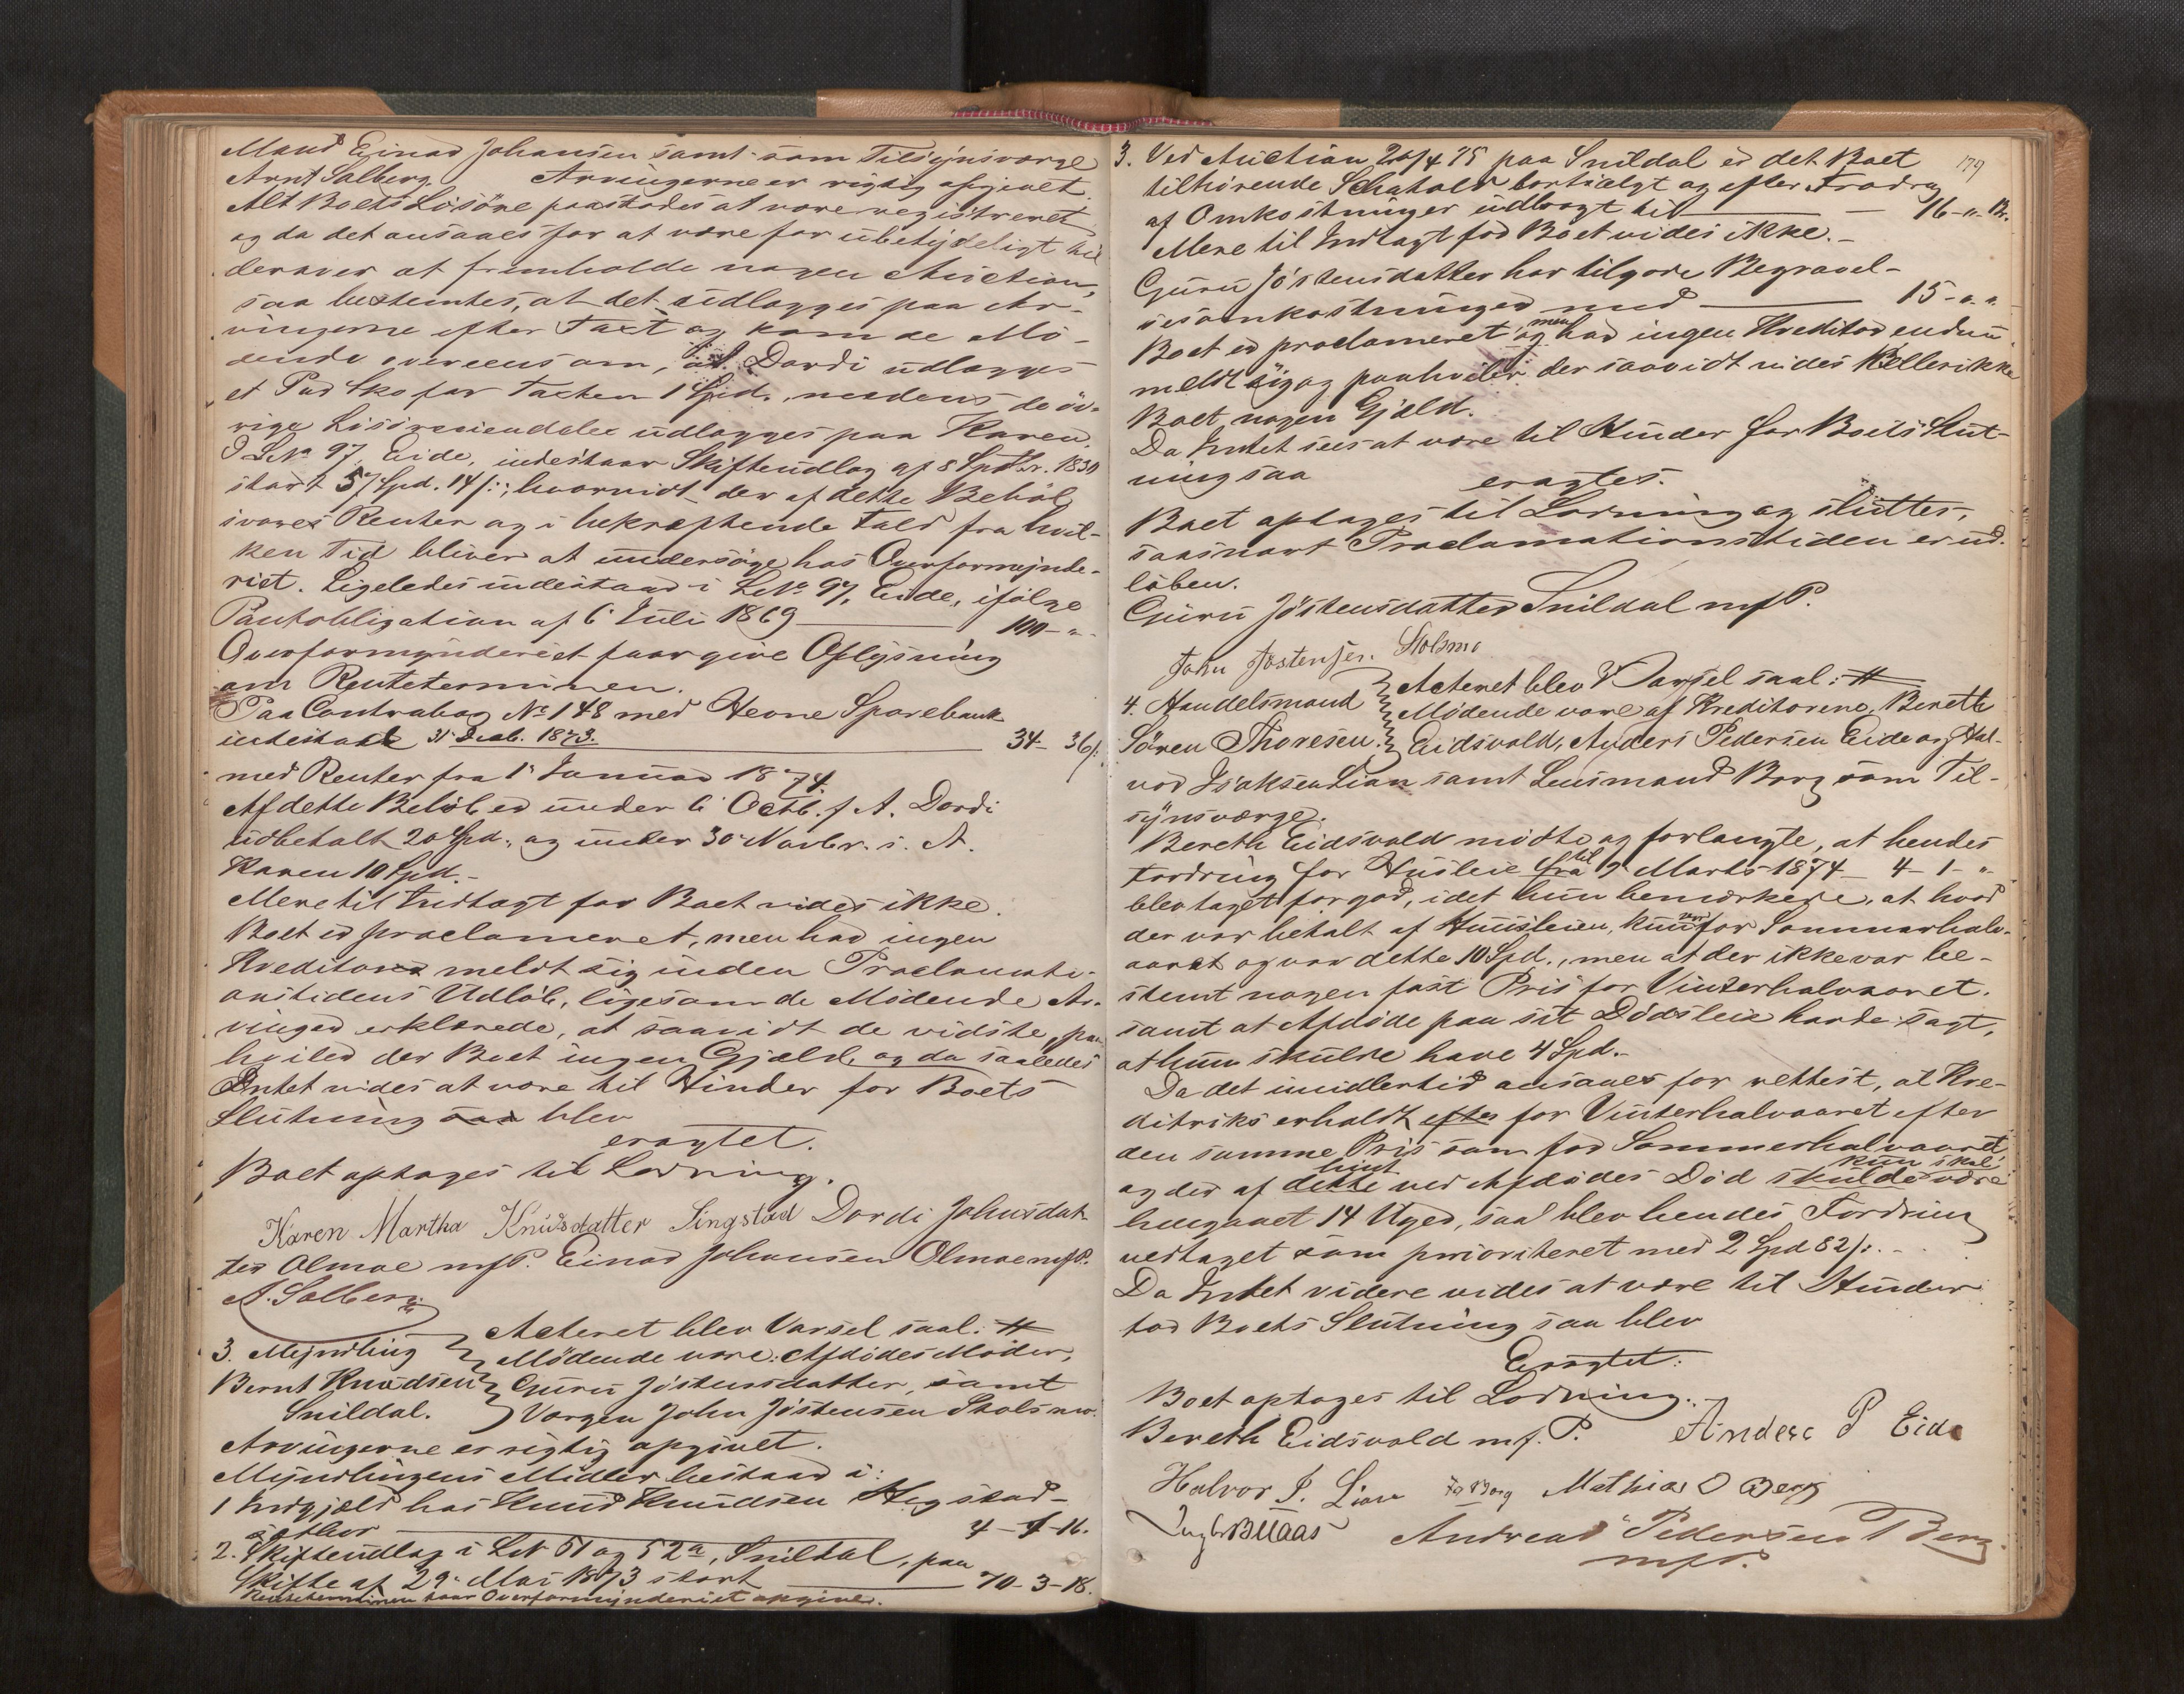 Mand Einar Johansen samt som Tilsynsværge
Arnt Solberg. Arvingerne er rigtig opgivet.
Alt Boets Løsøre paastodes at være registreret
og da det ansaaes for at være for ubetydeligt til
derover at fremholde nogen Auction,
saa bestemtes, at det udlægges paa Ar-
vingerne efter Taxt og kom de Mö-
dende overeens om, at Dordi udlægges
et Par Sko for Taxten 1 Spd., medens de öv-
rige Lösöreiendele udlægges paa Karen.
I LNo 97, Eide, indestaar Skifteudlæg af 8 Septbr. 1830
stort 57 Spd. 14 s:, hvorvidt der af dette Belöb
svares Renter og i bekræftende Fald fra hvil-
ken Tid bliver at undersöge hos Overformynde-
riet. Ligeledes indestaar i LNo 97, Eide, ifölge
Pantobligation af 6 Juli 1869 — 100 - " -
Overformynderiet faar give Oplysning
om Renteterminen.
Paa Contrabog No 148 med Hevne Sparebank
indestaar 31 Decb. 1873. — 34 - 36 s.
med Renter fra 1 Januar 1874.
Af dette Belöb er under 6 Octb. f. A. Dordi
udbetalt 20 Spd., og under 30 Novbr. s. A.
Karen 10 Spd. -
Mere til Indtægt for Boet vides ikke.
Boet er proclameret, men har ingen
Kreditor meldt sig inden Proclamati-
onstidens Udlöb, ligesom de Mödende Ar-
vinger erklærede, at saavidt de vidste, paa-
hviler der Boet ingen Gjæld, og da saaledes
Intet vides at være til Hinder for Boets
Slutning saa blev
eragtet.
Boet optages til Lodning.
Karen Martha Knudsdatter Singstad Dordi Johnsdat-
ter Olmoe m f P. Einar Johansen Olmoe m f P.
A. Solberg
3. Myndling Acteret blev Varsel saal: #
Mödende vare: Afdödes Moder,
Bernt Knudsen Guru Jöstensdatter, samt
Snildal. Værgen John Jöstensen Stolsmo.
Arvingerne er rigtig opgivet.
Myndlingens Midler bestaar i:
1 Indgjæld hos Knud Knudsen Hegstad-
sæther — 4 - 1 - 16.
2. Skifteudlæg i LNo 51 og 52a, Snildal, paa
Skifte af 29 Mai 1873 stort — 70 - 3 - 18.
Renteterminen faar Overformynderiet opgive.
179
3. Ved Auction 26/4 75 paa Snildal er det Boet
tilhörende Schatol bortsolgt og efter Fradrag
af Omkostninger udbragt til — 16 - " - 12.
Mere til Indtægt for Boet vides ikke. -
Guru Jöstensdatter har tilgode Begravel-
sesomkostninger med — 15 - " - "
Boet er proclameret og men har ingen Kreditor endnu
meldt sig og paahviler der saavidt vides hellerikke
Boet nogen Gjæld.
Da Intet sees at være til Hinder for Boets Slut-
ning saa
eragtes.
Boet optages til Lodning og sluttes,
saasnart Proclamationstiden er ud-
löben.
Guru Jöstensdatter Snildal m f P.
John Jøstensen Stolsmo
4. Handelsmand Acteret blev Varsel saal: #
Mödende vare af Kreditorene, Bereth
Sören Thoresen. Eidsvold, Anders Pedersen Eide og Hal-
vor Isaksen Lian samt Lensmand Borg som Til-
synsværge.
Bereth Eidsvold mödte og forlangte, at hendes
Fordring for Husleie fra til 7 Marts 1874 — 4 - 1 - "
blev taget for god, idet hun bemærkede, at hvad
der var betalt af Huusleien, kun var for Sommerhalv-
aaret og var dette 10 Spd., men at der ikke var be-
stemt nogen fast Pris for Vinterhalvaaret.
samt at Afdöde paa sit Dödsleie havde sagt,
at hun skulde have 4 Spd. -
Da det imidlertid ansaaes for rettest, at Kre-
ditriks erholdt efter for Vinterhalvaaret efter
den samme Pris som for Sommerhalvaaret,
og der af dette hint ved Afdödes Död skulde kun skal være
hengaaet 14 Uger, saa blev hendes Fordring
vedtaget som prioriteret med 2 Spd 82 s. -
Da Intet videre vides at være til Hinder
for Boets Slutning saa blev
Eragtet:
Boet optages til Lodning. -
Bereth Eidsvold m. f. P. Anders P Eide
Halvor I. Lian Borg Mathias O Berg
Andreas Pedersen Berg
m f P.